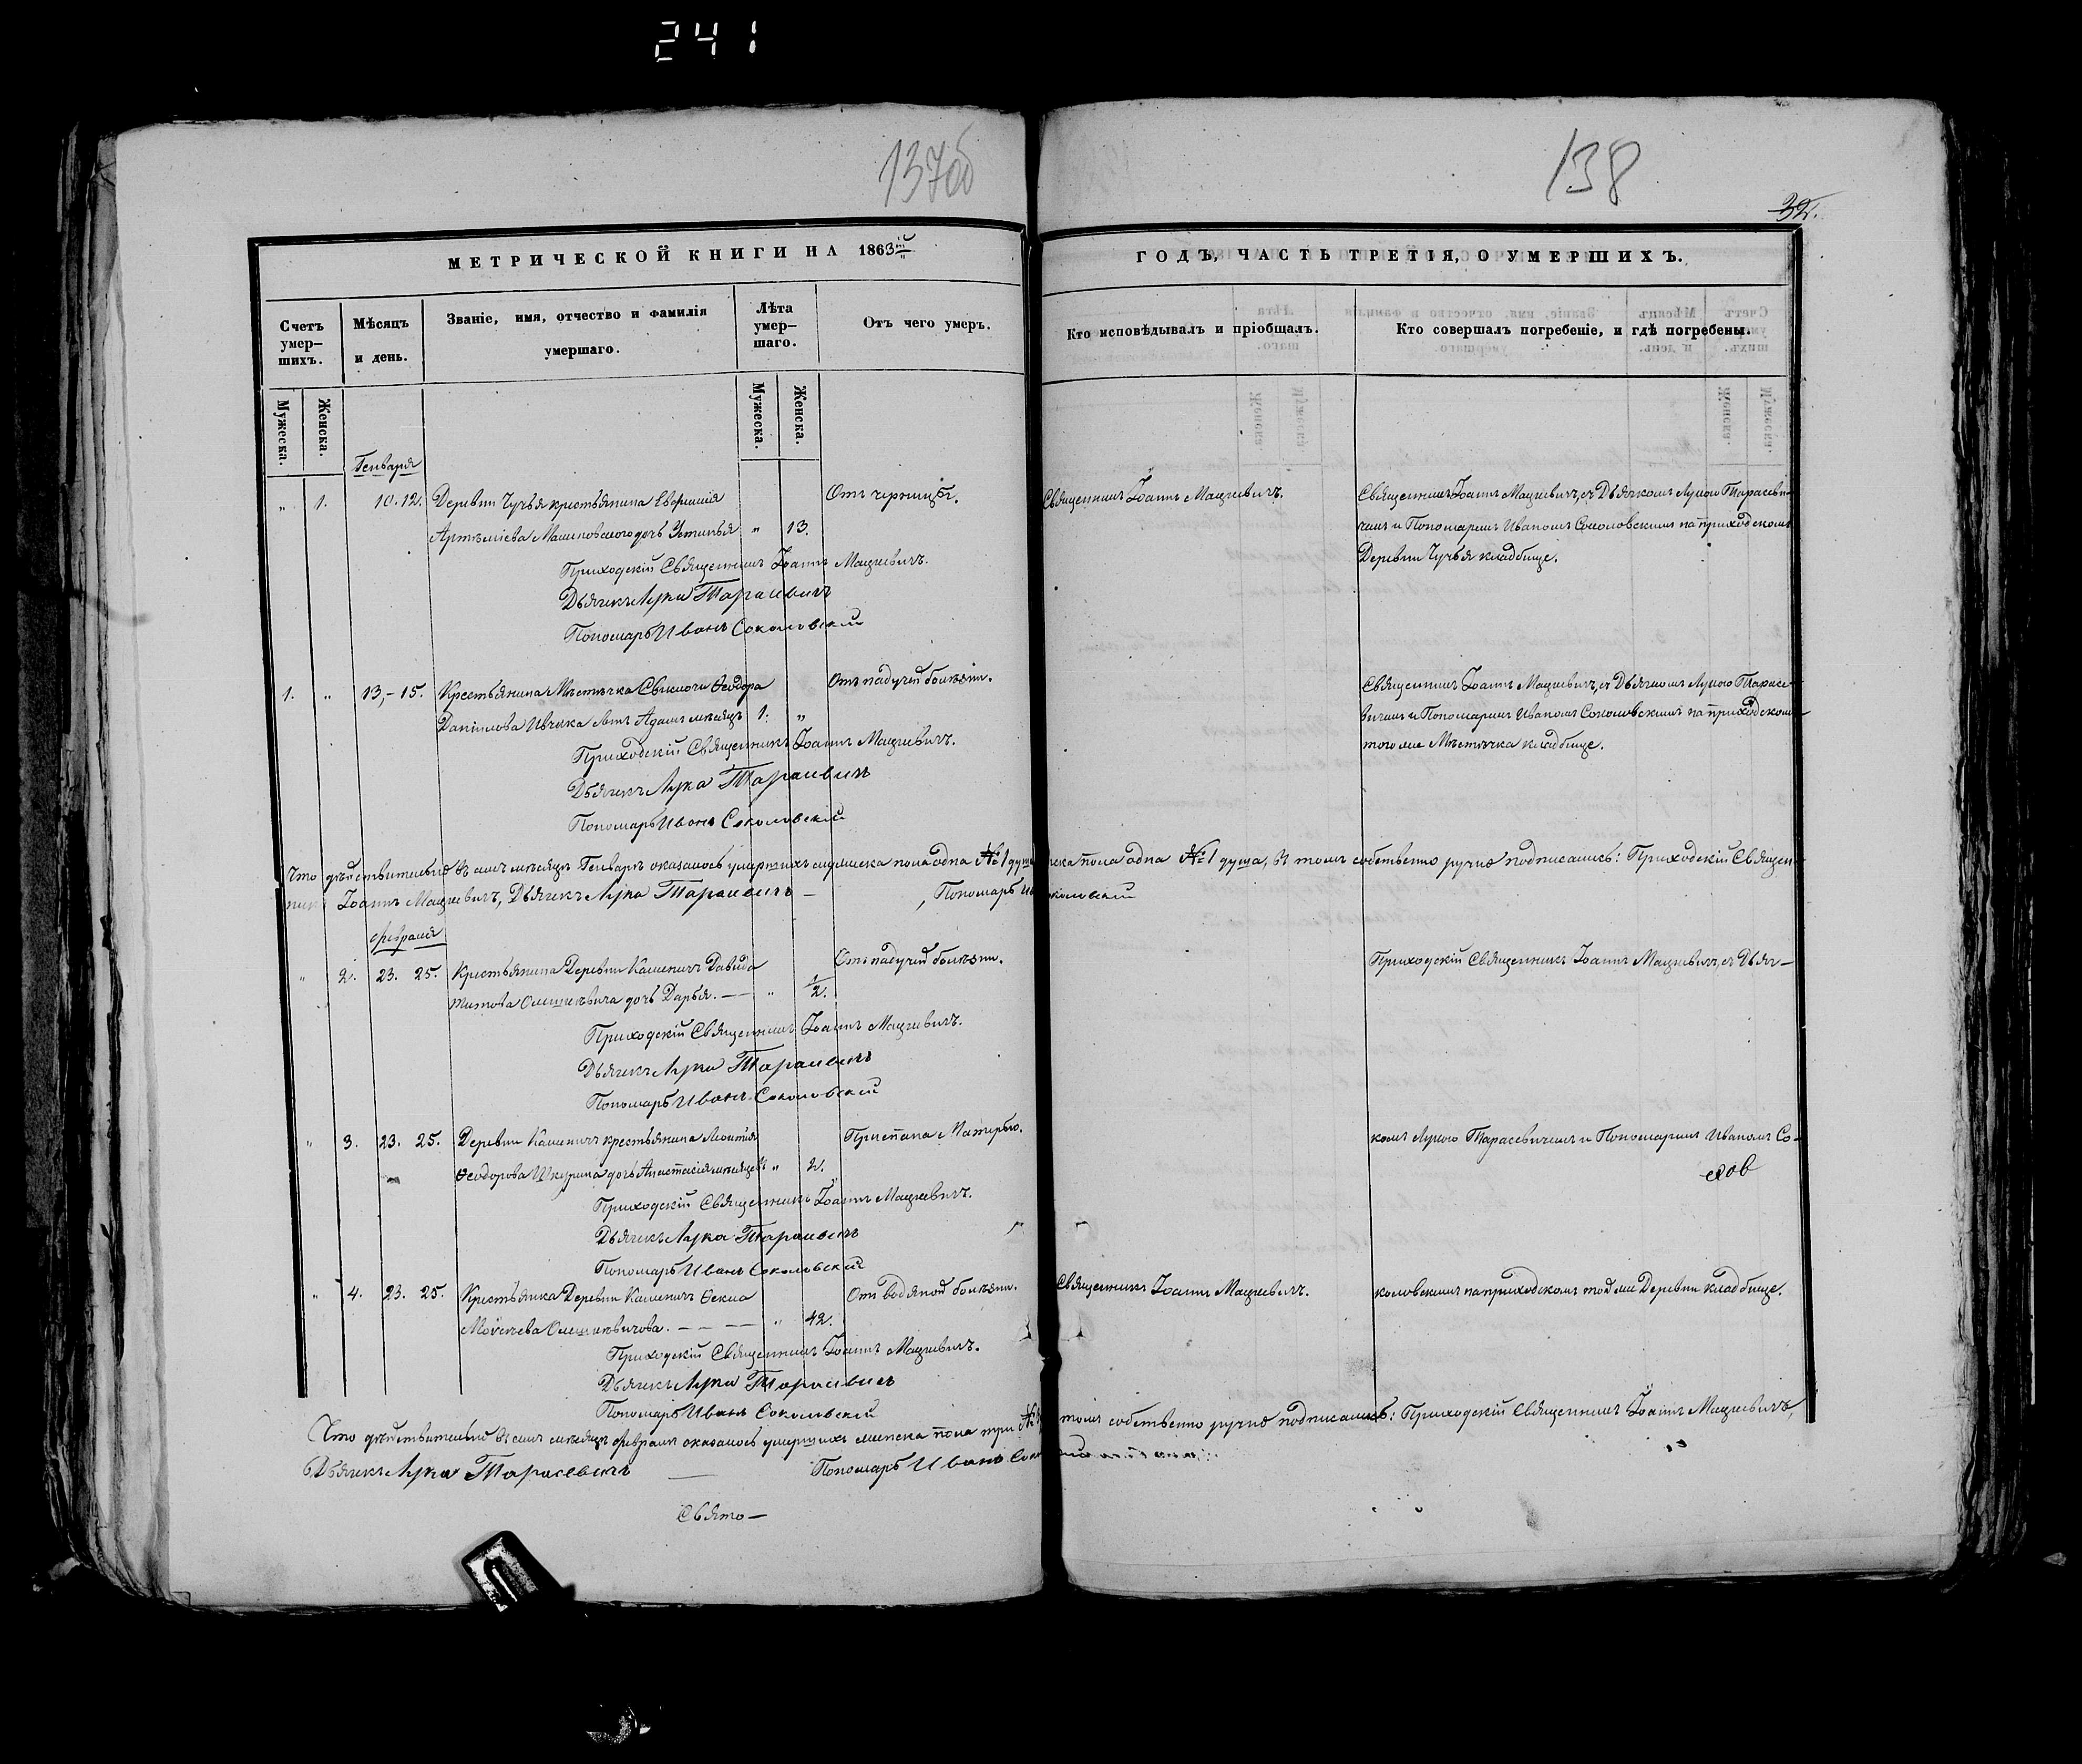 241
137об
138
32.
МЕТРИЧЕСКОЙ КНИГИ НА 1863й
ГОДЪ, ЧАСТЬ ТРЕТІЯ, О УМЕРШИХЪ.
Счетъ умер-шихъ.
Мѣсяцъ и день.
Званіе, имя, отчество и фамилія умершаго.
Лѣта умер-шаго.
Отъ чего умеръ.
Кто исповѣдывалъ и пріобщалъ.
Кто совершалъ погребеніе, и гдѣ погребены.
Мужеска.
Женска.
Мужеска.
Женска.
Генваря
„ 1. 10. 12. Деревни Чучья крестьянина Евфимія
Артеміева Малиновскаго дочь Устинья „ 13.
Священникъ Іоаннъ Мацкевичъ.
Священникъ Іоаннъ Мацкевичъ, съ Дьячкомъ Лукою Тарасеви-
чемъ и Пономаремъ Иваномъ Соколовскимъ на приходскомъ
Деревни Чучья кладбище.
Приходскій Священникъ Іоаннъ Мацкевичъ.
Дьячекъ Лука Тарасевичъ
Пономарь Иванъ Соколовскій
1. „ 13. 15. Крестьянина Мѣстечка Свислочи Ѳеодора
Даніилова сынъ Адамъ мѣсяцъ 1. „
Отъ падучей болѣзни.
Священникъ Іоаннъ Мацкевичъ, съ Дьячкомъ Лукою Тарасе-
вичемъ и Пономаремъ Иваномъ Соколовскимъ на приходскомъ
того же Мѣстечка кладбище.
Приходскій Священникъ Іоаннъ Мацкевичъ.
Дьячекъ Лука Тарасевичъ
Пономарь Иванъ Соколовскій
Что дѣйствительно въ семъ мѣсяцѣ Генварѣ оказалось умершихъ мужеска пола одна № 1 душа ска пола одна № 1 душа, въ томъ собственно ручно подписались: Приходскій Священ-
никъ Іоаннъ Мацкевичъ, Дьячекъ Лука Тарасевичъ — Пономарь Соколовскій
Февраля
„ 2. 23. 25. Крестьянина Деревни Каменичъ Давида
Титова дочь Дарья. — „ 1/2.
Отъ падучей болѣзни.
Приходскій Священникъ Іоаннъ Мацкевичъ, съ Дьяч-
Приходскій Священникъ Іоаннъ Мацкевичъ.
Дьячекъ Лука Тарасевичъ
Пономарь Иванъ Соколовскій
„ 3. 23. 25. Деревни Каменичъ крестьянина Леонтія
Ѳеодорова дочь Анастасія мѣсяцевъ „ 2.
Приспана Матерью.
комъ Лукою Тарасевичемъ и Пономаремъ Иваномъ Со-
Приходскій Священникъ Іоаннъ Мацкевичъ.
Дьячекъ Лука Тарасевичъ
Пономарь Иванъ Соколовскій
„ 4. 23. 25. Крестьянка Деревни Каменичъ Ѳекла
Моисеева — — — „ 42.
Отъ водяной болѣзни.
Священникъ Іоаннъ Мацкевичъ.
коловскимъ на приходскомъ той же Деревни кладбище.
Приходскій Священникъ Іоаннъ Мацкевичъ.
Дьячекъ Лука Тарасевичъ
Пономарь Иванъ Соколовскій
Что дѣйствительно въ семъ мѣсяцѣ Февралѣ оказалось умершихъ женска пола три № томъ собственно ручно подписались: Приходскій Священникъ Іоаннъ Мацкевичъ,
Дьячекъ Лука Тарасевичъ — Пономарь Иванъ
Свято—